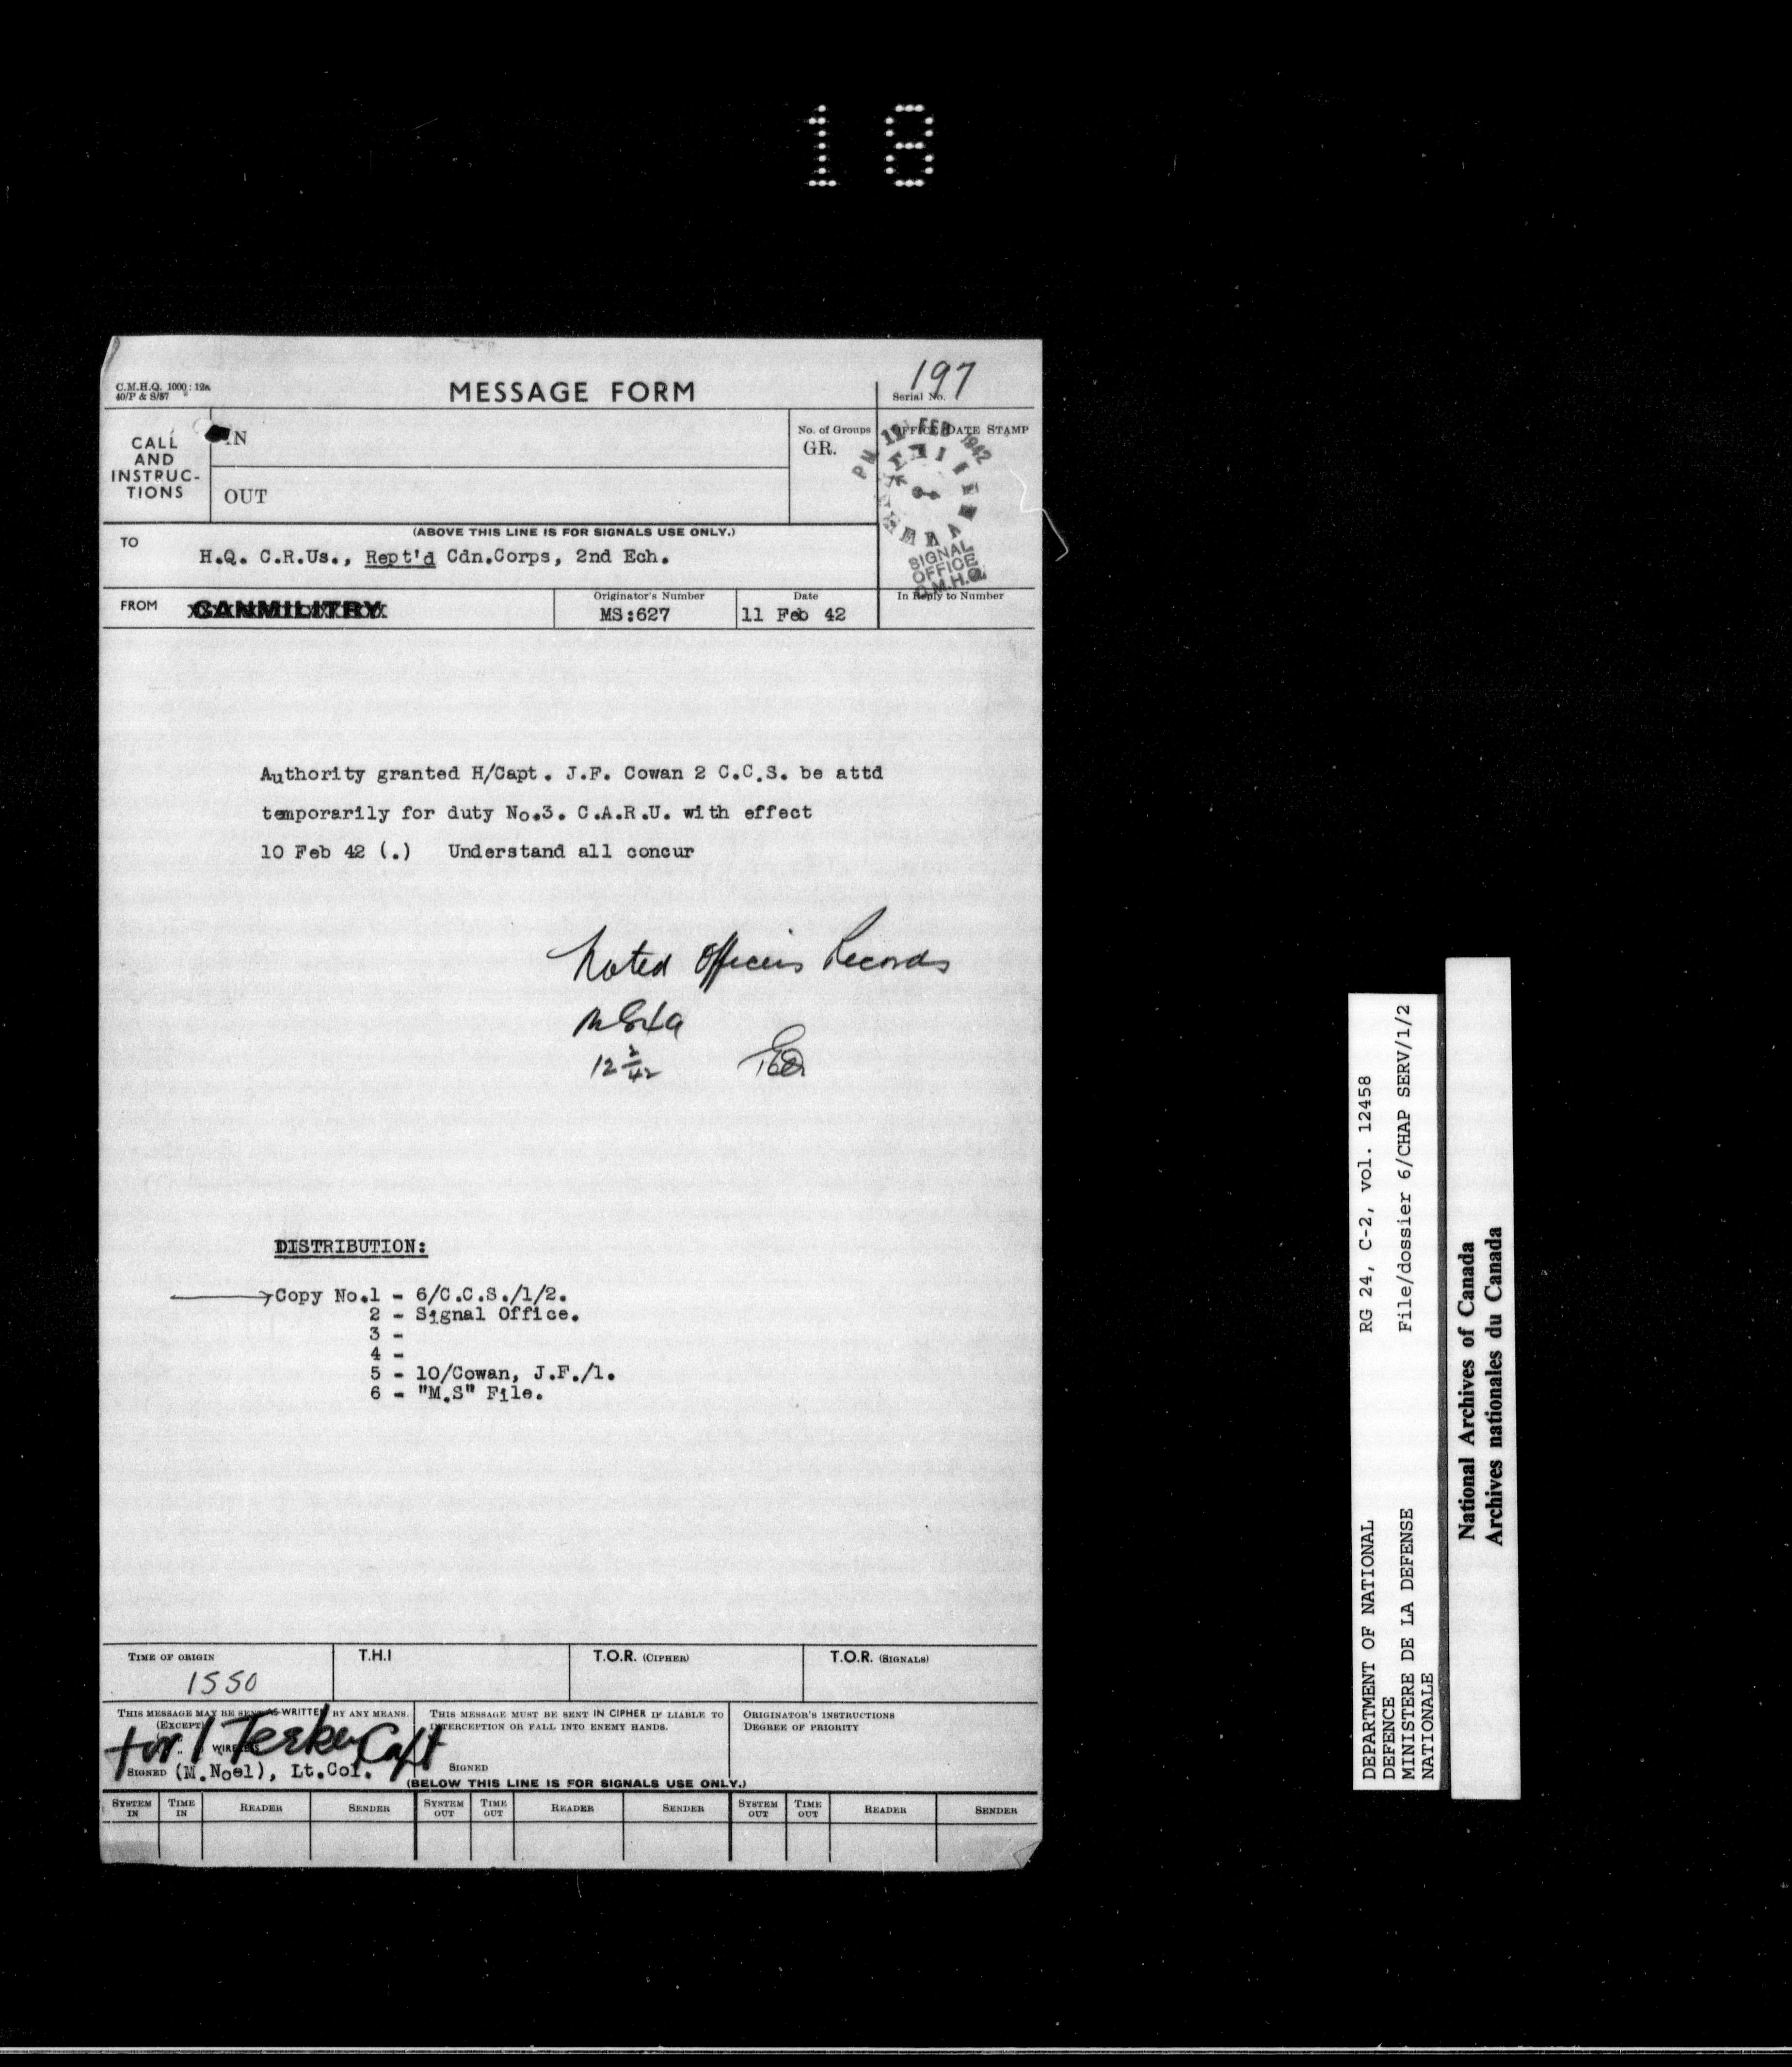 18
C.M.H.Q. 1000 : 12a
40/P & S/57
MESSAGE FORM
197
Serial No.
CALL
AND
INSTRUC-
TIONS
IN
OUT
No. of Groups
GR.
OFFICE DATE STAMP
PM 11 FEB 1942
SIGNAL
OFFICE
C.M.H.Q.
(ABOVE THIS LINE IS FOR SIGNALS USE ONLY.)
TO
H.Q. C.R.Us., Rept'd Cdn.Corps, 2nd Ech.
FROM
CANMILITRY
Originator's Number
MS:627
Date
11 Feb 42
In Reply to Number
Authority granted H/Capt. J.F. Cowan 2 C.C.S. be attd
temporarily for duty No.3. C.A.R.U. with effect
10 Feb 42 (.) Understand all concur
Noted Officers Records
12 2/42
DISTRIBUTION:
Copy No.1 - 6/C.C.S./1/2.
2 - Signal Office.
3 -
4 -
5 - 10/Cowan, J.F./1.
6 - "M.S" File.
TIME OF ORIGIN
1550
T.H.I
T.O.R. (CIPHER)
T.O.R. (SIGNALS)
THIS MESSAGE MAY BE SENT AS WRITTEN BY ANY MEANS.
(EXCEPT)
WIRELESS
for Capt
SIGNED (M.Noel), Lt.Col.
THIS MESSAGE MUST BE SENT IN CIPHER IF LIABLE TO
INTERCEPTION OR FALL INTO ENEMY HANDS.
SIGNED
ORIGINATOR'S INSTRUCTIONS
DEGREE OF PRIORITY
(BELOW THIS LINE IS FOR SIGNALS USE ONLY.)
SYSTEM IN
TIME IN
READER
SENDER
SYSTEM OUT
TIME OUT
READER
SENDER
SYSTEM OUT
TIME OUT
READER
SENDER
DEPARTMENT OF NATIONAL
DEFENCE
MINISTERE DE LA DEFENSE
NATIONALE
RG 24, C-2, vol. 12458
File/dossier 6/CHAP SERV/1/2
National Archives of Canada
Archives nationales du Canada